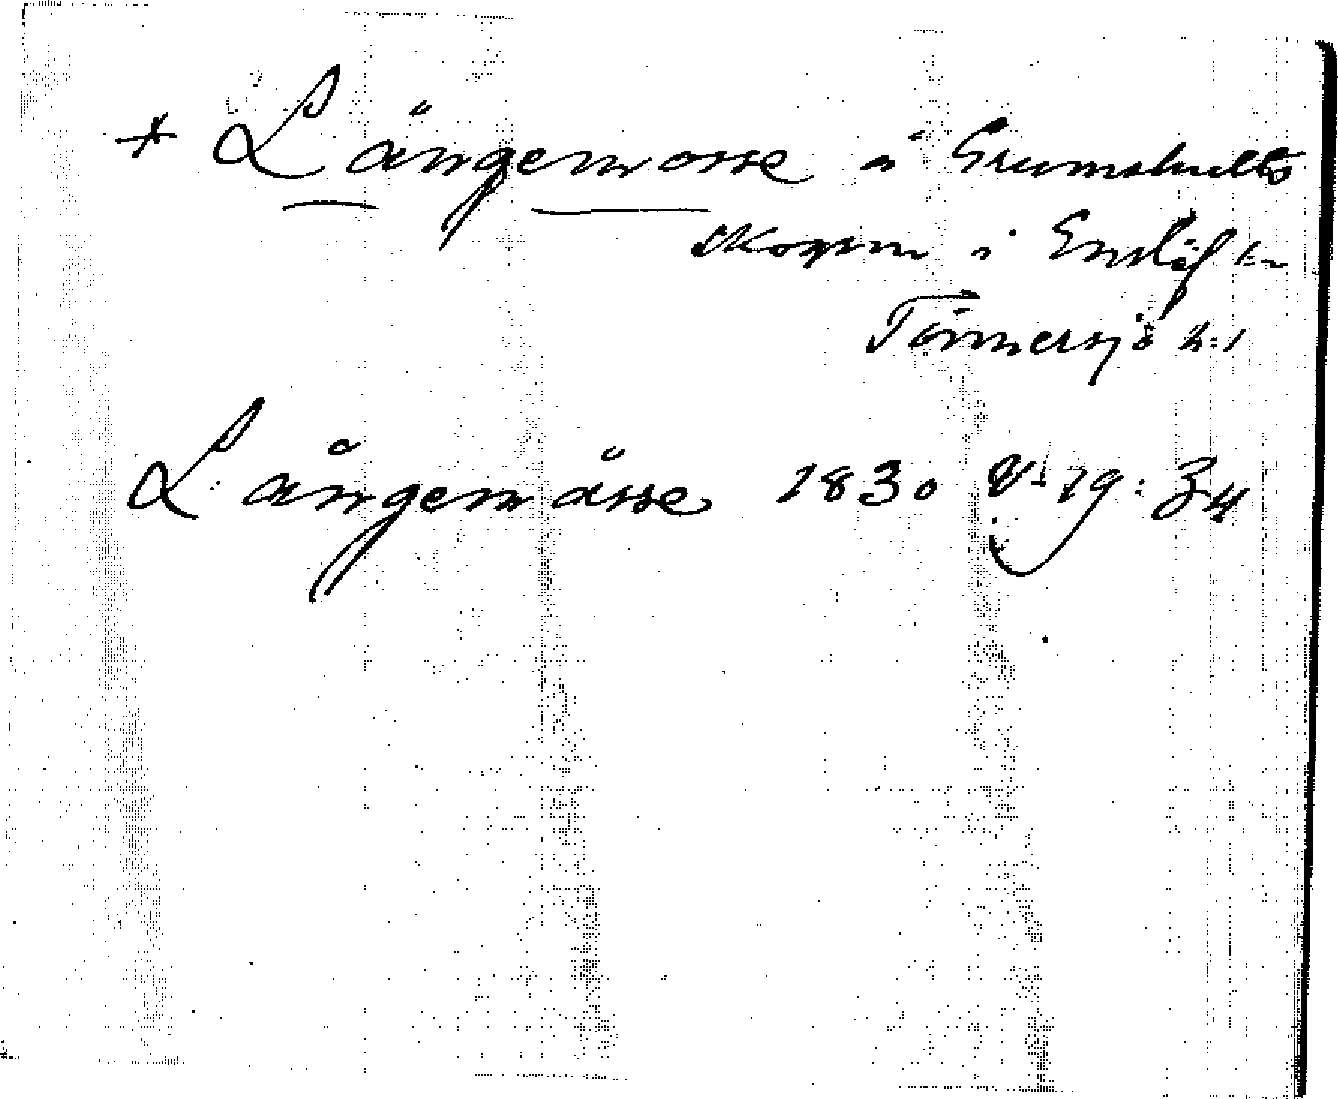 * Långemosse å Grumshults
skogen i Enslöf sn
Tönnersjö h:d
Långemåsse 1830 V 19:34